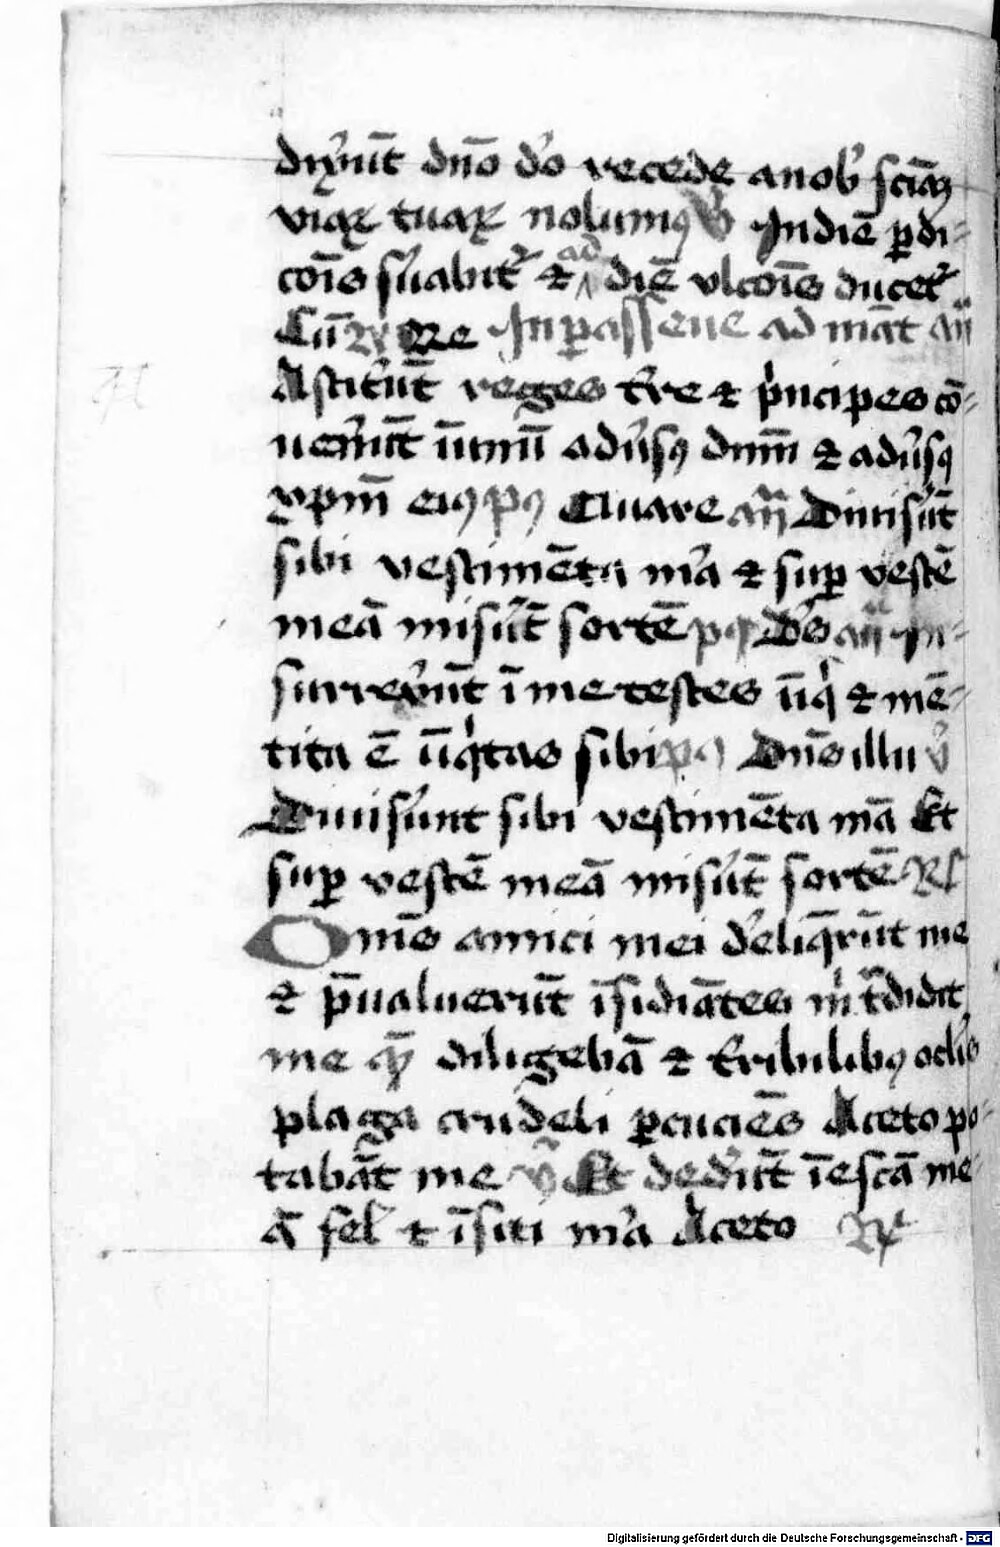 dixerūt dn̄o deo recede a nob̾ sciāꝫ
viaꝝ tuaꝝ nolumꝯ ꟟ In diē ꝑdi-
cōis s̾uabit̾ ⁊ ad diē vlcōis ducet̾
Cū Re In parassene ad māt an̄
Astiterūt reges t̾re ⁊ p̾ncipes cō-
uen̾ūt ūnū adu̾sꝯ dnm̄ ⁊ adu̾sꝯ
xp̄m eiꝯ pꝰ Quare an̄ Diuis̾ūt
sibi vestimēta m̾a ⁊ suꝑ vestē
meā mis̾ūt sortē ps Ds̾ an̄ In-
surrex̾ūt ī me testes īiq̾ ⁊ mē-
tita ē īiq̾tas sibi ps Dn̄s illu v̾
Diuis̾unt sibi vestimēta m̄a Et
suꝑ vestē meā mis̾ūt sortē R̾s
Omēs amici mei d̾eliq̄r̾ūt me
⁊ p̄ualuerūt īsidiātes m̾ t̾didit
me q̄ꝫ diligebā ⁊ t̾ribilibꝯ ocl̾is
plaga crudeli ꝑcuciēs Aceto po-
tabāt me v̾ Et ded̾ūt ī escā me-
ā fel ⁊ ī siti m̾a Aceto R̾
Digitalisierung gefördert durch die Deutsche Forschungsgemeinschaft - DFG